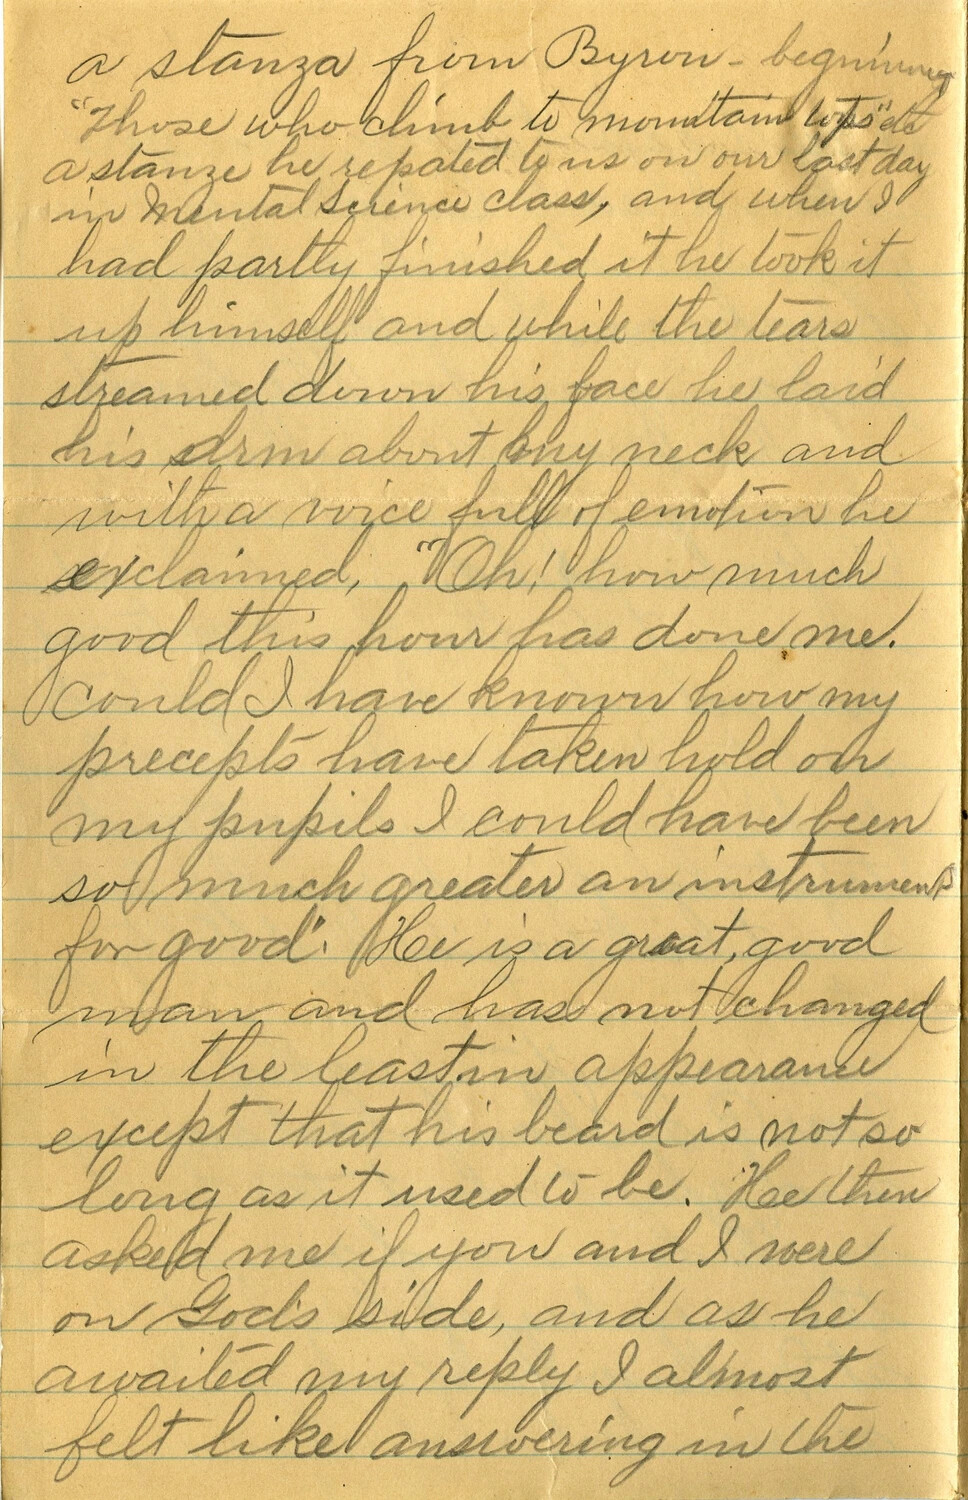 a stanza from Byron - beginning
"Those who climb to mountain tops" etc
a stanze he repated to us on our last day
in Mental Science class, and when I
had partly finished it he took it
up himself and while the tears
streamed down his face he laid
his arm about my neck and
with a voice full of emotion he
exclaimed, "Oh! how much
good this hour has done me.
Could I have known how my
precepts have taken hold on
my pupils I could have been
so much greater an instrument
for good". He is a great, good
man and has not changed
in the least in appearance
except that his beard is not so
long as it used to be. He then
asked me if you and I were
on God's side, and as he
awaited my reply I almost
felt like answering in the